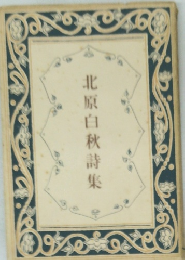 北原白秋詩集